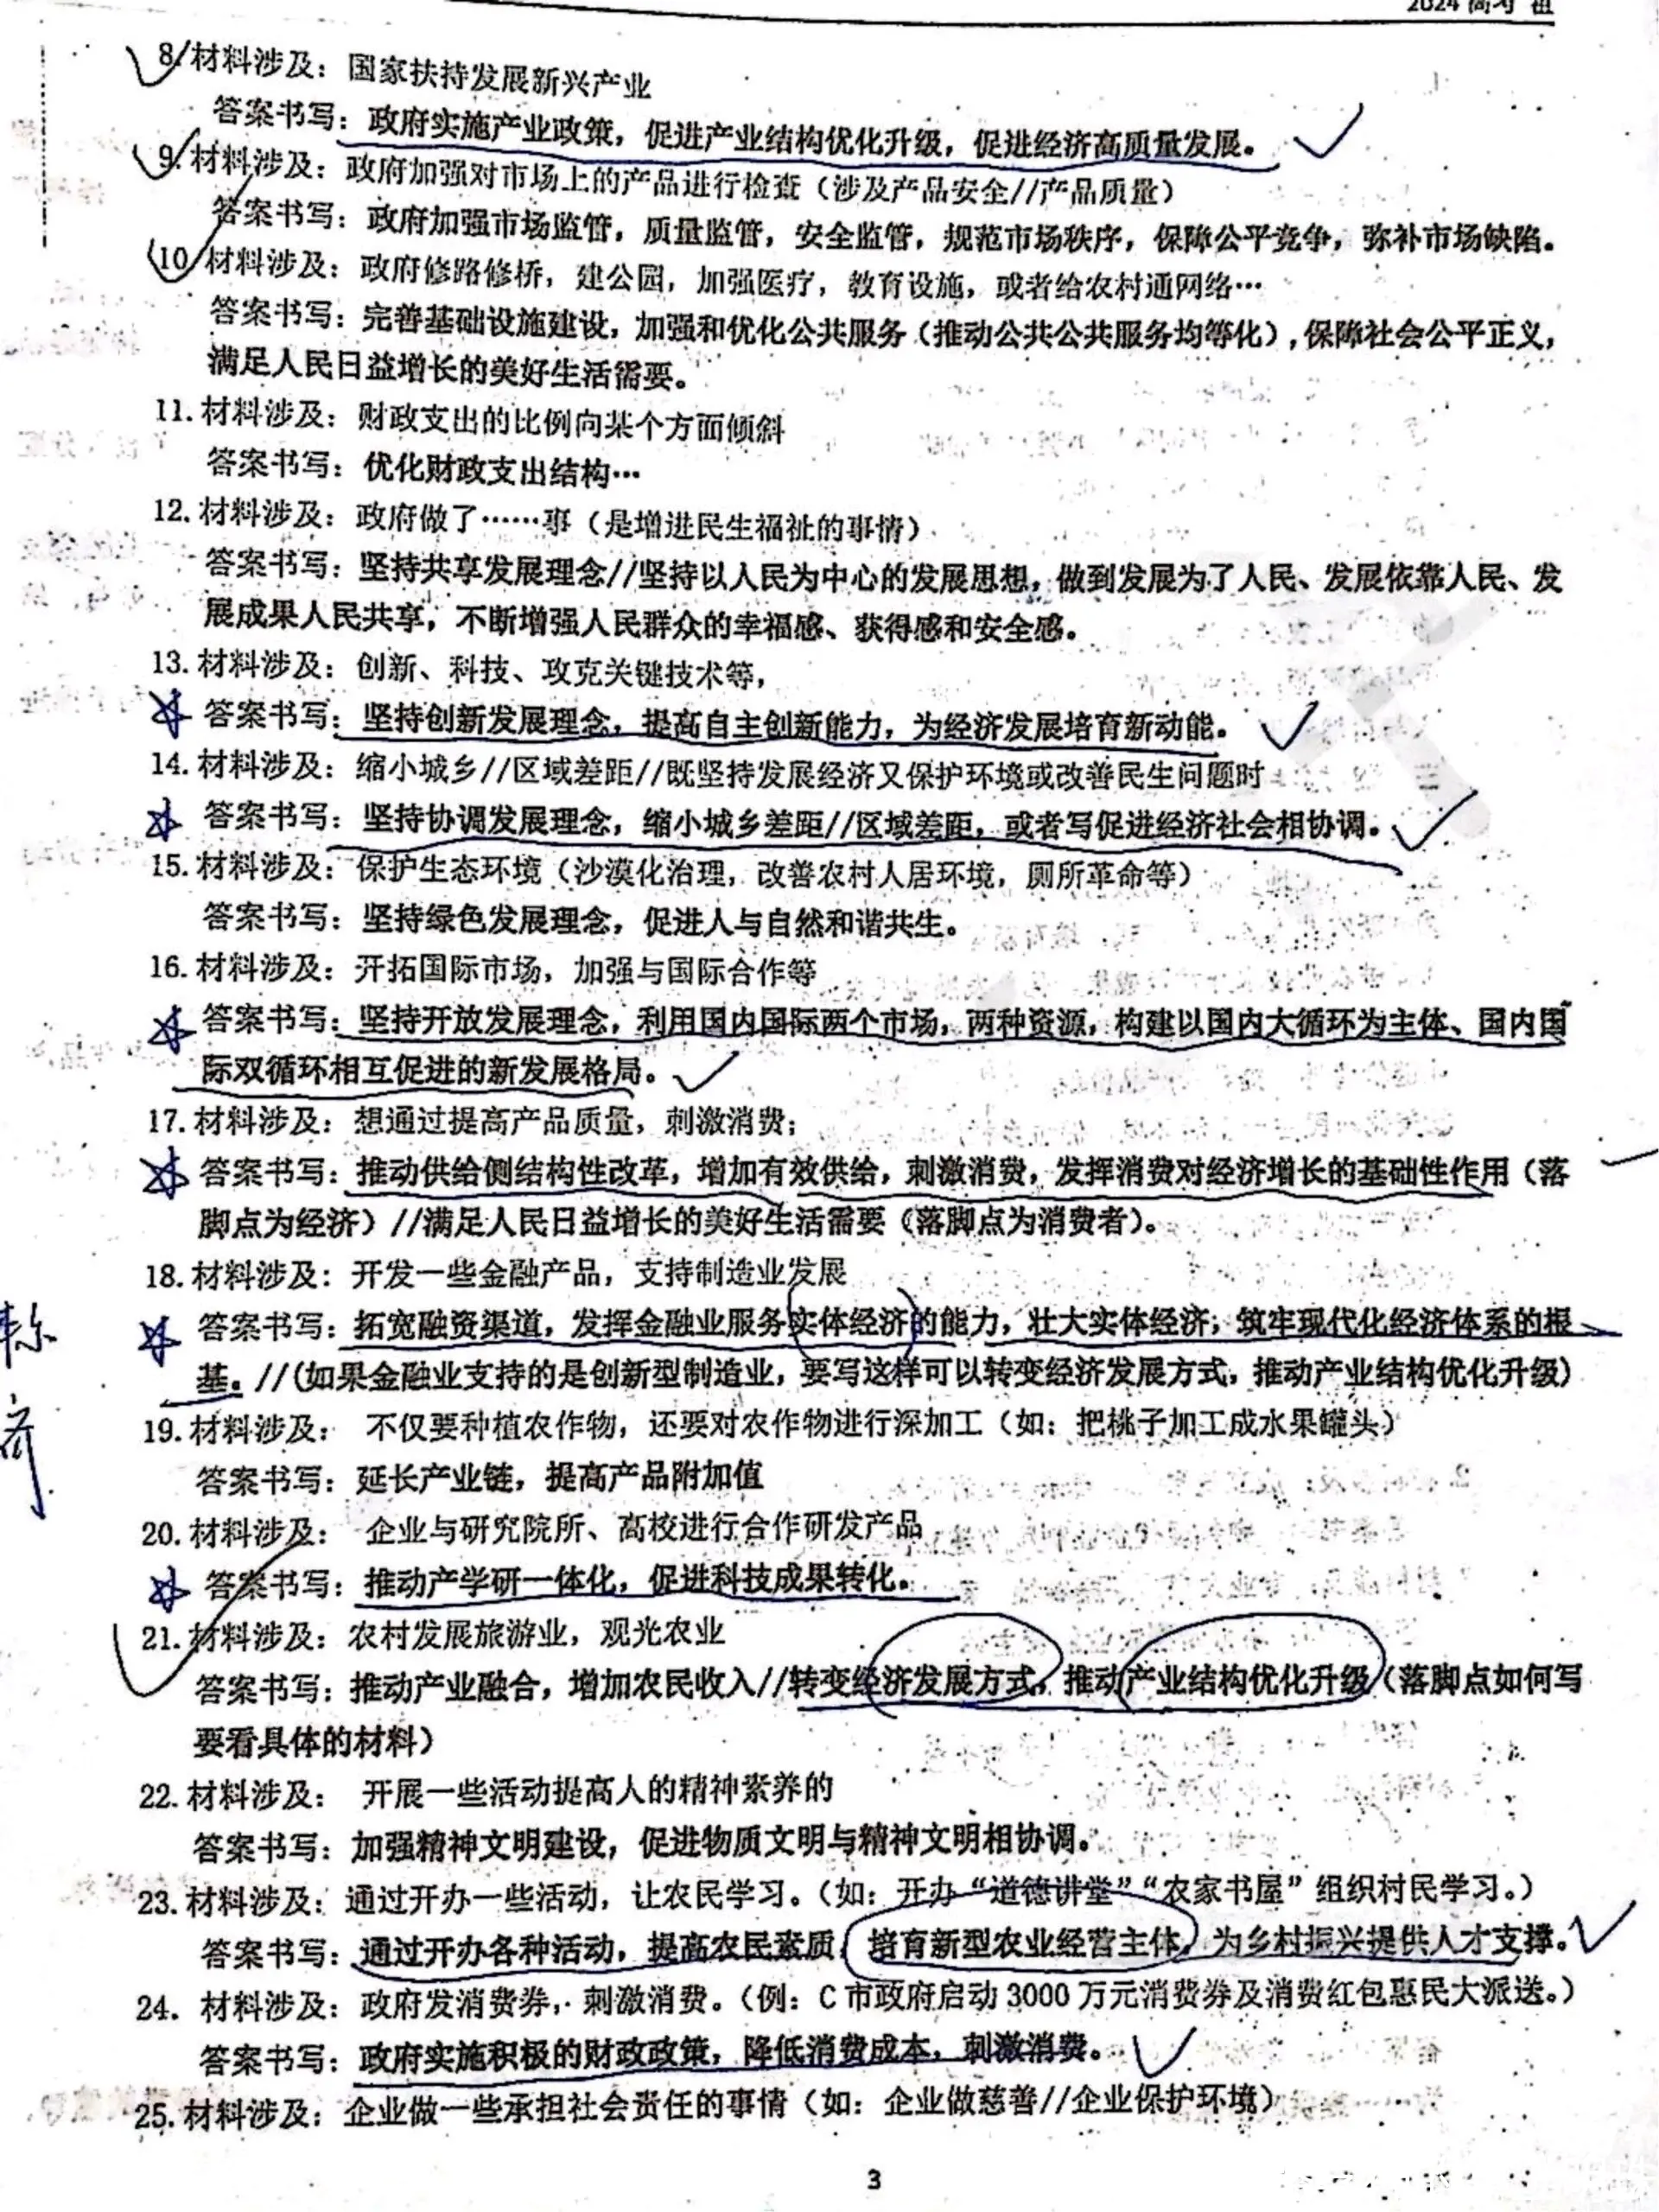 2024 高考
8.材料涉及：国家扶持发展新兴产业
答案书写：政府实施产业政策，促进产业结构优化升级，促进经济高质量发展。
9.材料涉及：政府加强对市场上的产品进行检查（涉及产品安全//产品质量）
答案书写：政府加强市场监管，质量监管，安全监管，规范市场秩序，保障公平竞争，弥补市场缺陷。
10.材料涉及：政府修路修桥，建公园，加强医疗，教育设施，或者给农村通网络…
答案书写：完善基础设施建设，加强和优化公共服务（推动公共公共服务均等化）,保障社会公平正义，
满足人民日益增长的美好生活需要。
11.材料涉及：财政支出的比例向某个方面倾斜
答案书写：优化财政支出结构…
12.材料涉及：政府做了……事（是增进民生福祉的事情）
答案书写：坚持共享发展理念//坚持以人民为中心的发展思想，做到发展为了人民、发展依靠人民、发
展成果人民共享，不断增强人民群众的幸福感、获得感和安全感。
13.材料涉及：创新、科技、攻克关键技术等，
答案书写：坚持创新发展理念，提高自主创新能力，为经济发展培育新动能。
14.材料涉及：缩小城乡//区域差距//既坚持发展经济又保护环境或改善民生问题时
答案书写：坚持协调发展理念，缩小城乡差距//区域差距，或者写促进经济社会相协调。
15.材料涉及：保护生态环境（沙漠化治理，改善农村人居环境，厕所革命等）
答案书写：坚持绿色发展理念，促进人与自然和谐共生。
16.材料涉及：开拓国际市场，加强与国际合作等
答案书写：坚持开放发展理念，利用国内国际两个市场，两种资源，构建以国内大循环为主体、国内国
际双循环相互促进的新发展格局。
17.材料涉及：想通过提高产品质量，刺激消费；
答案书写：推动供给侧结构性改革，增加有效供给，刺激消费，发挥消费对经济增长的基础性作用（落
脚点为经济）//满足人民日益增长的美好生活需要（落脚点为消费者）。
18.材料涉及：开发一些金融产品，支持制造业发展
答案书写：拓宽融资渠道，发挥金融业服务实体经济的能力，壮大实体经济；筑牢现代化经济体系的根
基。//(如果金融业支持的是创新型制造业，要写这样可以转变经济发展方式，推动产业结构优化升级)
19.材料涉及： 不仅要种植农作物，还要对农作物进行深加工（如：把桃子加工成水果罐头）
答案书写：延长产业链，提高产品附加值
20.材料涉及： 企业与研究院所、高校进行合作研发产品
答案书写：推动产学研一体化，促进科技成果转化。
21.材料涉及：农村发展旅游业，观光农业
答案书写：推动产业融合，增加农民收入//转变经济发展方式，推动产业结构优化升级（落脚点如何写
要看具体的材料）
22.材料涉及： 开展一些活动提高人的精神素养的
答案书写：加强精神文明建设，促进物质文明与精神文明相协调。
23.材料涉及：通过开办一些活动，让农民学习。（如：开办“道德讲堂”“农家书屋”组织村民学习。）
答案书写：通过开办各种活动，提高农民素质，培育新型农业经营主体，为乡村振兴提供人才支撑。
24. 材料涉及：政府发消费券，刺激消费。（例：C市政府启动3000万元消费券及消费红包惠民大派送。）
答案书写：政府实施积极的财政政策，降低消费成本，刺激消费。
25.材料涉及：企业做一些承担社会责任的事情（如：企业做慈善//企业保护环境）
3